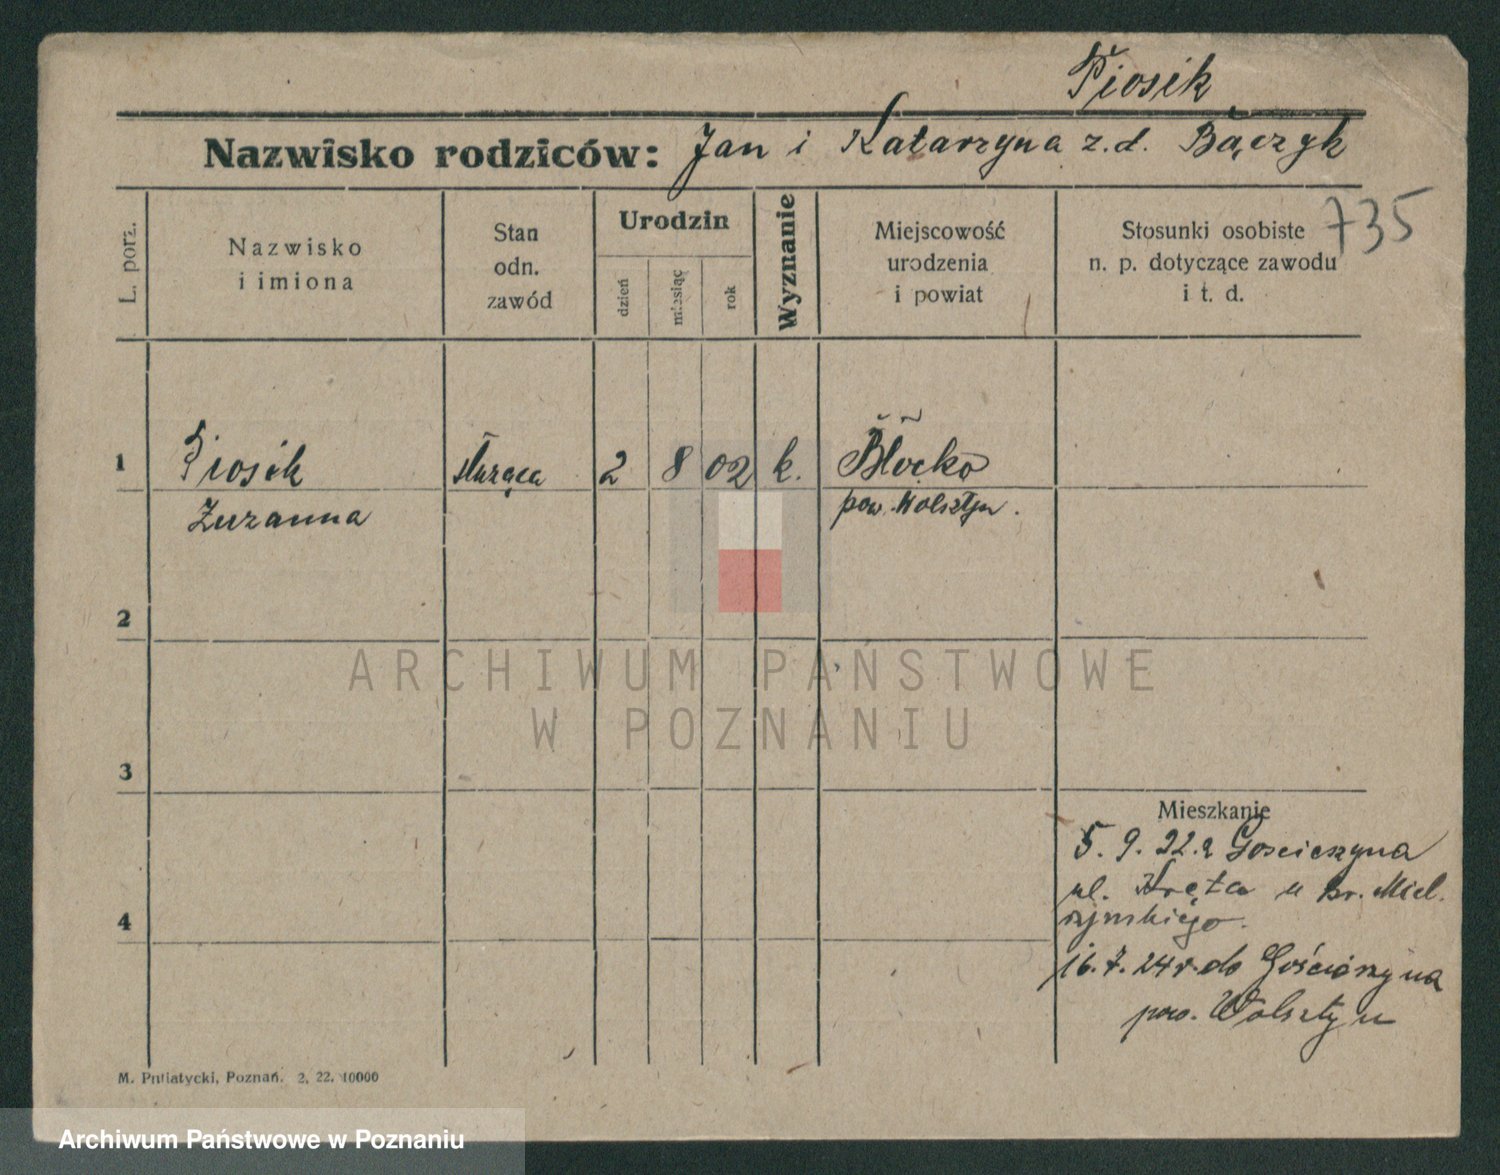 Piosik
Nazwisko rodziców: Jan i Katarzyna z.d. Bączyk
735
L. porz.
Nazwisko
i imiona
Stan
odn.
zawód
Urodzin
dzień
miesiąc
rok
Wyznanie
Miejscowość
urodzenia
i powiat
Stosunki osobiste
n. p. dotyczące zawodu
i t. d.
1 Piosik służąca 2 8 02 k. Błocko
Zuzanna pow. Wolsztyn.
2
ARCHIWUM PAŃSTWOWE
W POZNANIU
3
Mieszkanie
5. 9. 22. z Gościeszyna
ul. Kręta u hr. Miel.
żyńskiego.
4
16. 7. 24 r. do Gościeszyna
pow. Wolsztyn
M. Putiatycki, Poznań. 2, 22. 10000
Archiwum Państwowe w Poznaniu